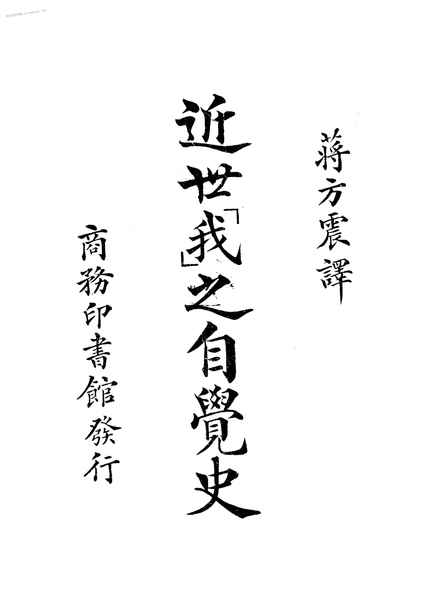 蔣方震譯
近世「我」之自覺史
商務印書館發行